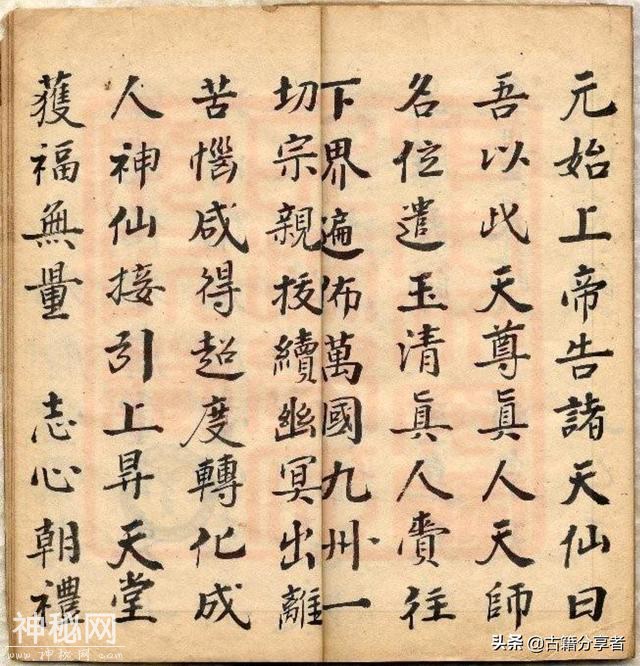 元始上帝告諸天仙曰
吾以此天尊眞人天師
名位遣玉清眞人賫往
下界遍佈萬國九州一
切宗親拔續幽冥出離
苦惱咸得超度轉化成
人神仙接引上昇天堂
獲福無量 志心朝禮
神秘网
头条 @古籍分享者